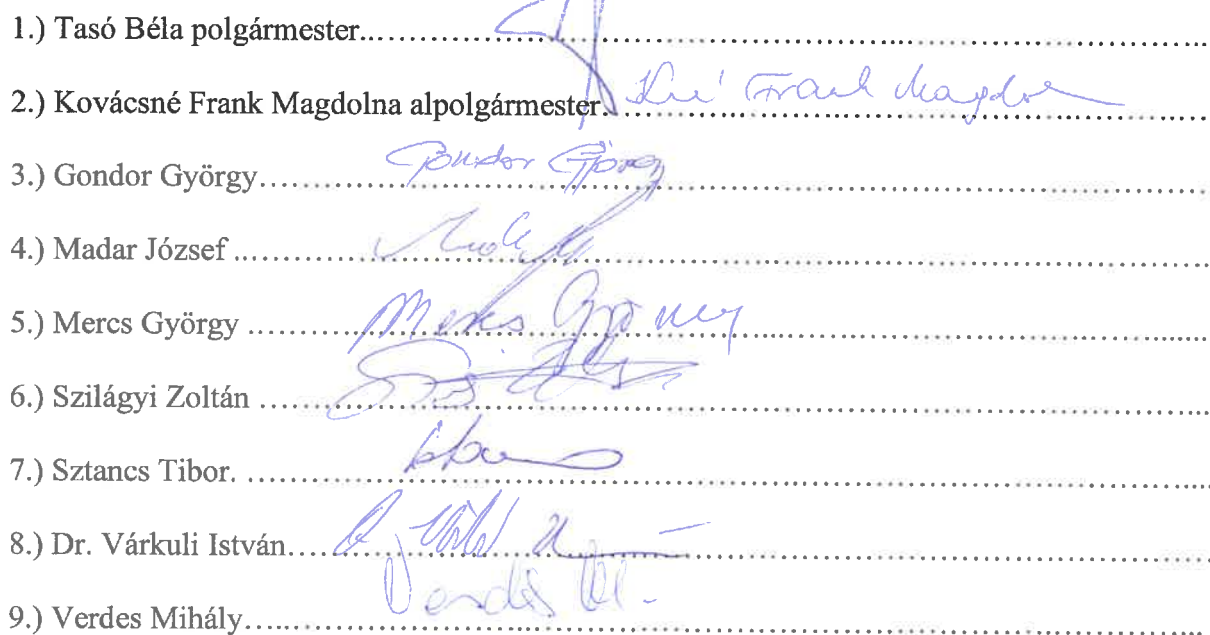 1.) Tasó Béla polgármester..............................
2.) Kovácsné Frank Magdolna alpolgármester. Kné Frank Magdolna
3.) Gondor György.............. Gondor György
4.) Madar József ..............................
5.) Mercs György .............. Mercs György
6.) Szilágyi Zoltán ..............................
7.) Sztancs Tibor. ..............................
8.) Dr. Várkuli István..............................
9.) Verdes Mihály.............. Verdes M.